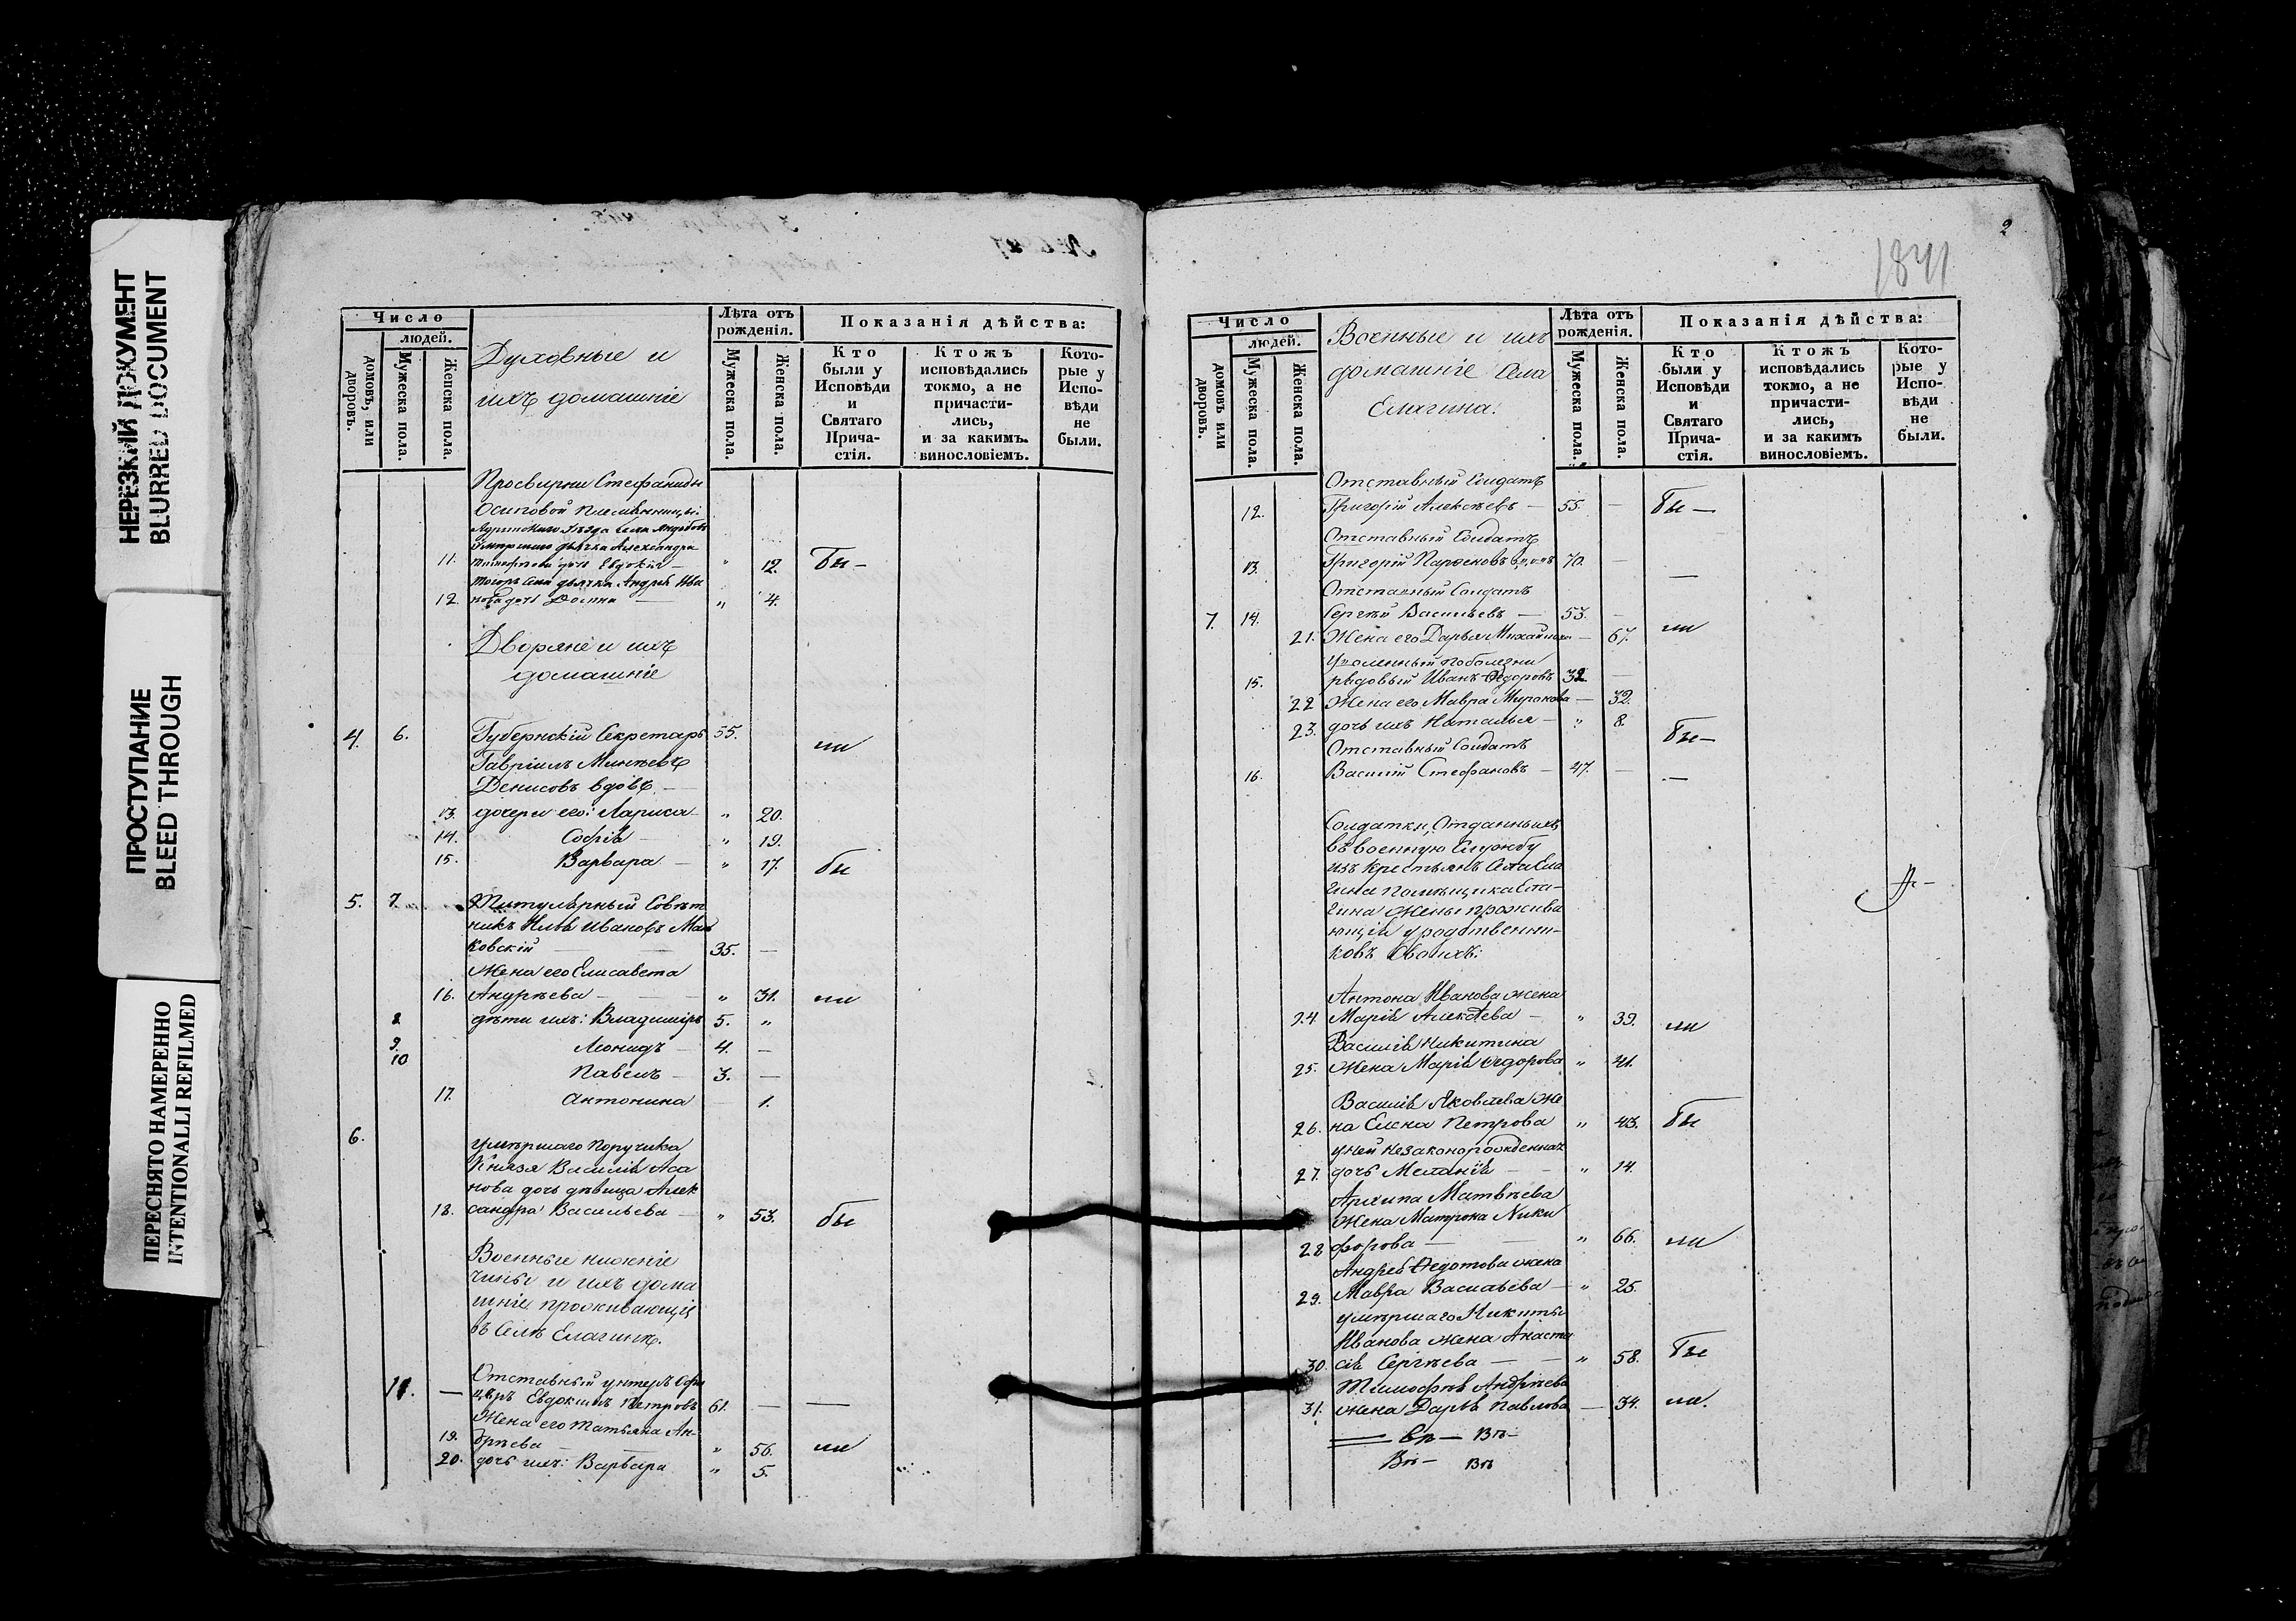 НЕРЕЗКИЙ ДОКУМЕНТ
BLURRED DOCUMENT
ПРОСТУПАНИЕ
BLEED THROUGH
ПЕРЕСНЯТО НАМЕРЕННО
INTENTIONALLI REFILMED
Число
людей.
домовъ, или дворовъ.
Мужеска пола.
Женска пола.
Духовные и
ихъ домашніе
Лѣта отъ рожденія.
Мужеска пола.
Женска пола.
Показанія дѣйства:
Кто были у Исповѣди и Святаго Прича- стія.
Ктожъ исповѣдались токмо, а не причасти- лись, и за какимъ винословіемъ.
Кото- рые у Испо- вѣди не были.
Просвирни Стефаниды
Осиповой племянницы
умершаго дьячка Александра
11. Тимофеева дочь Евдокія — " 12. Бы —
тогожъ села дьячка Андрея Ива
12. нова дочь Домна — " 4.
Дворяне и ихъ
домашніе
4. 6. Губернскій Секретарь 55. ли
Гавріилъ Минѣевъ
Денисовъ вдовъ —
13. дочери его: Лариса — " 20.
14. Софія — " 19.
15. Варвара — " 17. бы
5. 7. Титулярный Совѣт
никъ Илья Ивановъ Мал
ковскій 35. —
Жена его Елисавета
16. Андрѣева — " 31. ли
8 дѣти ихъ: Владимиръ 5. "
9. Леонидъ — 4. —
10 Павелъ — 3. —
17. Антонина — 1.
6. умершаго Поручика
Князя Василія Аса
нова дочь дѣвица Алек
18. сандра Васильева — " 53. бы
Военные нижніе
чины и ихъ дома
шніе проживающіе
въ Селѣ Елагинѣ.
Отставный унтеръ Офи
11. — церъ Евдокимъ Петровъ 61. — —
Жена его Татьяна Ан-
19. дрѣева — " 56. ли
20. дочь ихъ: Варвара " 5.
2
1841
Число
людей.
домовъ или дворовъ.
Мужеска пола.
Женска пола.
Военные и ихъ
домашніе Села
Елагина.
Лѣта отъ рожденія.
Мужеска пола.
Женска пола.
Показанія дѣйства:
Кто были у Исповѣди и Святаго Прича- стія.
Ктожъ исповѣдались токмо, а не причасти- лись, и за какимъ винословіемъ.
Кото- рые у Испо- вѣди не были.
Отставный Солдатъ
12. Григорій Алексѣевъ — 55. — Бы —
Отставный Солдатъ
13. Григорій Парѳеновъ 70. — —
Отставный Солдатъ
7. 14. Сергѣй Васильевъ — 53. —
21. Жена его Дарья Михайлова — 67. ли
уволенный по болезни
15. рядовый Иванъ Ѳедоровъ 32 —
22 Жена его Мавра Миронова — 32.
23. дочь ихъ Наталья — " 8. Бы —
Отставный Солдатъ
16. Василій Стефановъ — 47. — —
Солдатки, Отданныхъ
въ военную Службу
изъ Крестьянъ Села Ела
гина помѣщика Ела-
гина Жены прожива
ющія у родственни-
ковъ Своихъ:
Антона Иванова жена
24. Марія Алексѣева — " 39. ли
Василія Никитина
25. Жена Марія Ѳедорова " 41.
Василія Яковлева Же
26. на Елена Петрова " 43. Бы
у ней незаконорожденная
27. дочь Меланія — " 14.
Архипа Матвѣева
Жена Матрона Ники
28 форова — " 66. ли
Андрея Ѳедотова жена
29. Мавра Васильева — " 25.
умершаго Никиты
Иванова жена Анаста
30. сія Сергѣева — " 58. Бы
Тимофея Андрѣева
31. жена Дарья Павлова — 34. ли.